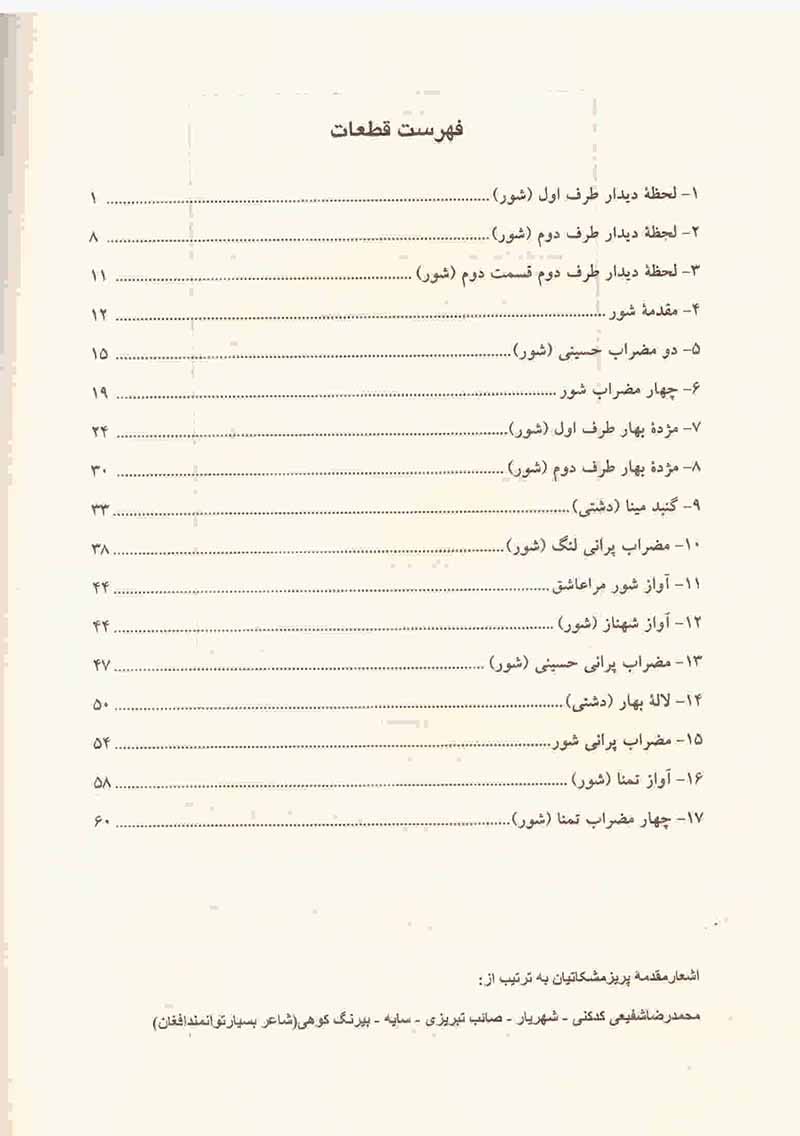 فهرست قطعات
۱- لحظهٔ دیدار طرف اول (شور) ........ ۱
۲- لحظهٔ دیدار طرف دوم (شور) ........ ۸
۳- لحظهٔ دیدار طرف دوم قسمت دوم (شور) ........ ۱۱
۴- مقدمهٔ شور ........ ۱۲
۵- دو مضراب حسینی (شور) ........ ۱۵
۶- چهار مضراب شور ........ ۱۹
۷- مژدهٔ بهار طرف اول (شور) ........ ۲۴
۸- مژدهٔ بهار طرف دوم (شور) ........ ۳۰
۹- گنبد مینا (دشتی) ........ ۳۳
۱۰- مضراب پرانی لنگ (شور) ........ ۳۸
۱۱- آواز شور مراعاشق ........ ۴۴
۱۲- آواز شهناز (شور) ........ ۴۴
۱۳- مضراب پرانی حسینی (شور) ........ ۴۷
۱۴- لالهٔ بهار (دشتی) ........ ۵۰
۱۵- مضراب پرانی شور ........ ۵۴
۱۶- آواز تمنا (شور) ........ ۵۸
۱۷- چهار مضراب تمنا (شور) ........ ۶۰
اشعارمقدمهٔ پریزمشکاتیان به ترتیب از:
محمدرضاشفیعی کدکنی - شهریار - صائب تبریزی - سایه - بیرنگ کوهی(شاعر بسیارتوانمندافغان)